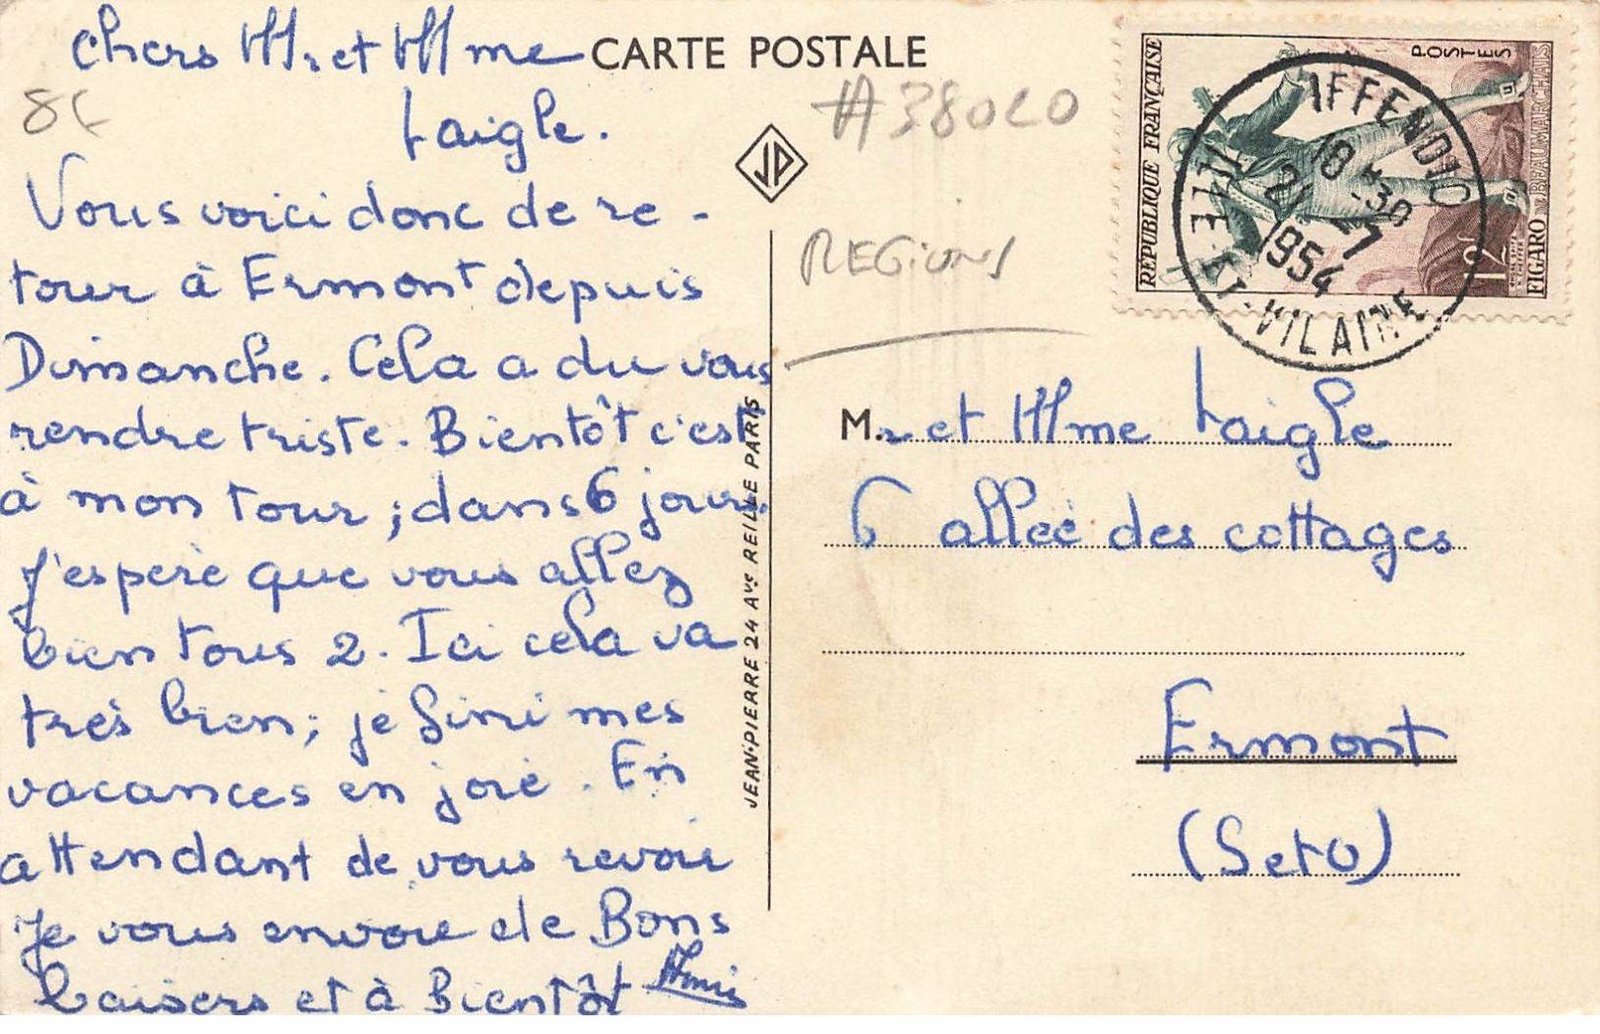 Chers Mr et Mme
Laigle.
Vous voici donc de re-
tour à Ermont depuis
Dimanche. Cela a du vous
rendre triste. Bientôt c'est
à mon tour ; dans 6 jours.
J'espère que vous allez
bien tous 2. Ici cela va
très bien ; je fini mes
vacances en joie. En
attendant de vous revoir
Je vous envoie de Bons
baisers et à Bientôt
CARTE POSTALE
#38020
JP
REGIONS
JEAN-PIERRE 24 Ave REILLE PARIS
REPUBLIQUE FRANÇAISE
POSTES
12F
FIGARO DE BEAUMARCHAIS
IFFENDIC
10 30
27
1954
ILLE-ET-VILAINE
M.r et Mme Laigle
6 allée des cottages
Ermont
(SetO)